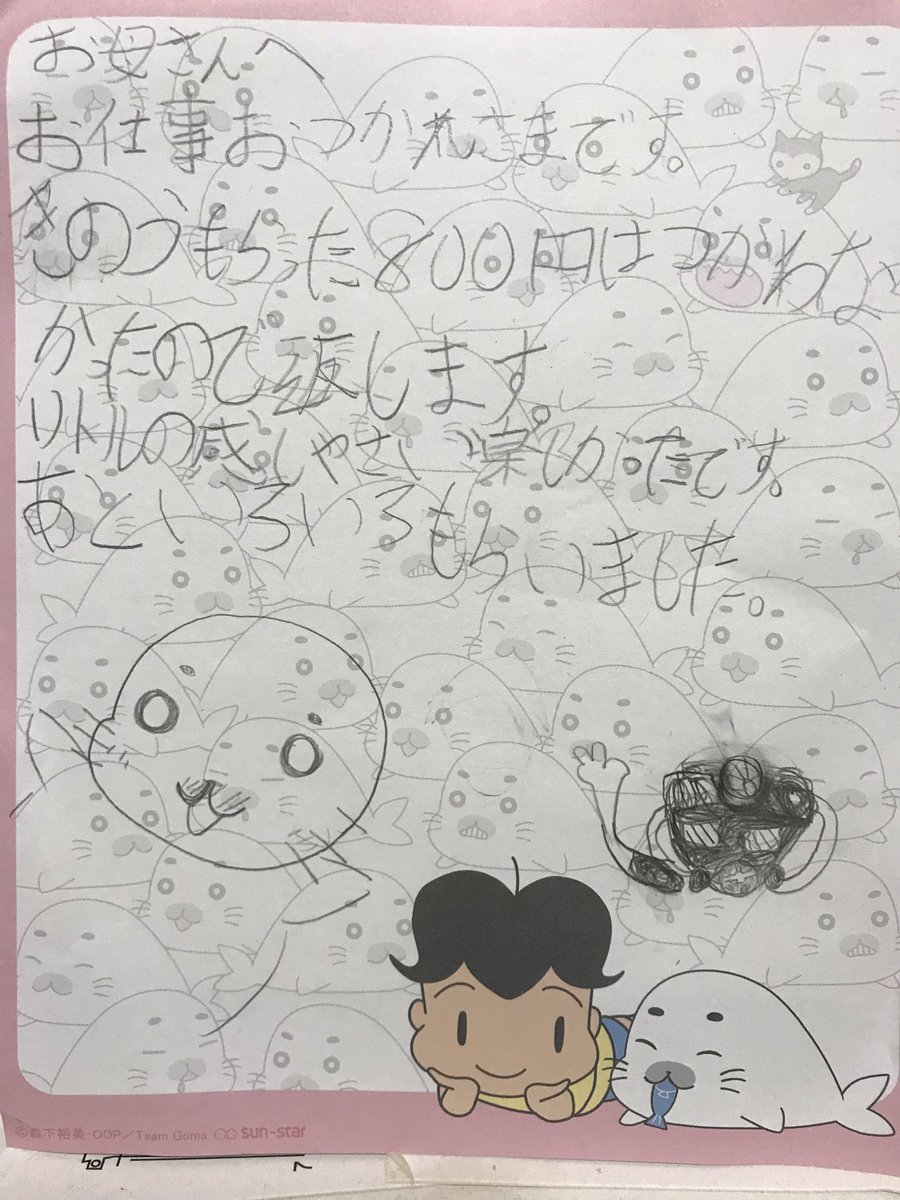 お母さんへ
お仕事おつかれさまです。
きのうもらった800円はつがわな
かったので返します。
リトルの感しゃさい楽しかったです。
あといろいろもらいました。
©森下裕美・OOP/Team Goma sun-star